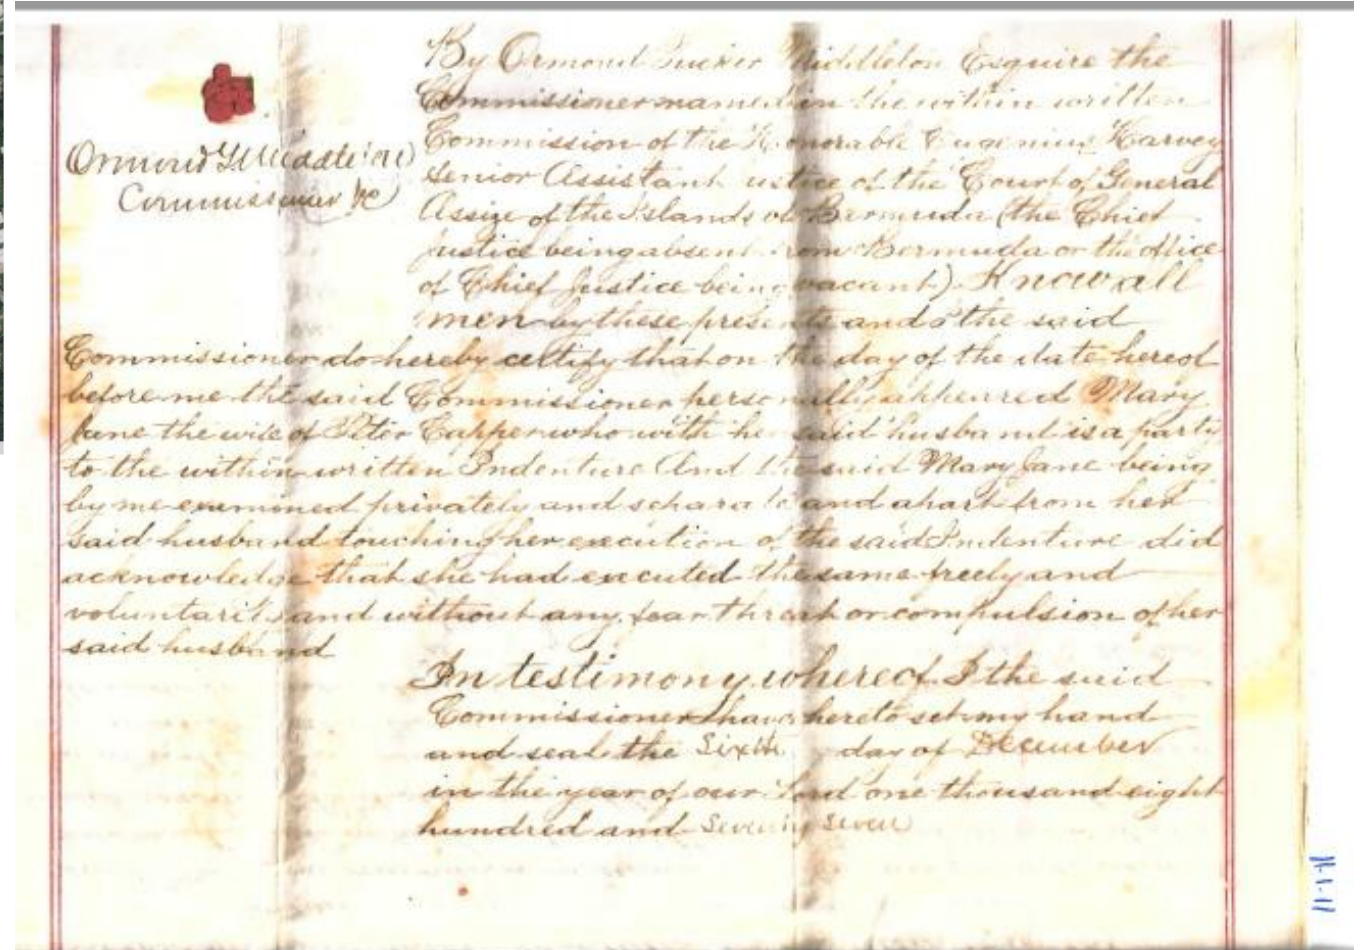 By Ormond Tucker Middleton Esquire the
Commissioner named in the within written
Commission of the Honorable Eugenius Harvey
Senior Assistant Justice of the Court of General
Assize of the Islands of Bermuda (the Chief
Justice being absent from Bermuda or the office
of Chief Justice being vacant) Know all
men by these presents and I the said
Ormond T Middleton
Commissioner &c
Commissioner do hereby certify that on the day of the date hereof
before me the said Commissioner personally appeared Mary
Jane the wife of Peter Tapper who with her said husband is a party
to the within written Indenture And the said Mary Jane being
by me examined privately and separate and apart from her
said husband touching her execution of the said Indenture did
acknowledge that she had executed the same freely and
voluntarily and without any fear threat or compulsion of her
said husband
In testimony whereof I the said
Commissioner have hereto set my hand
and seal the Sixth day of December
in the year of our Lord one thousand eight
hundred and Seventy Seven